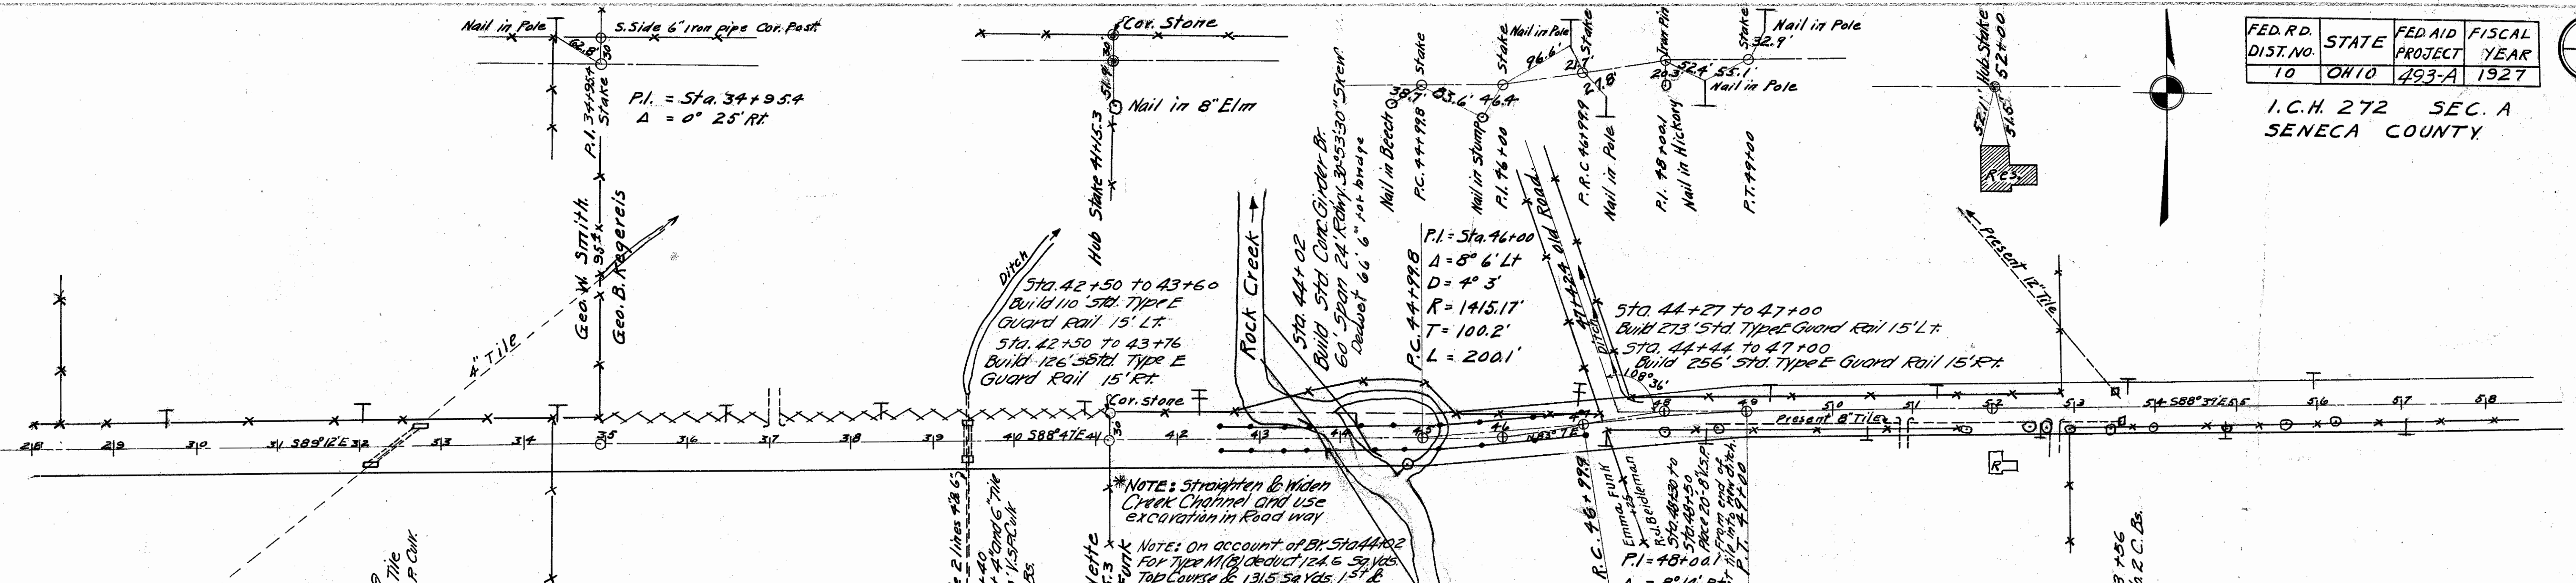 Nail in Pole
S. Side 6" Iron pipe Cor. Post
62.8'
30'
P.I. 34+95.4
Stake
P.I. = Sta. 34+95.4
Δ = 0° 25' Rt.
Geo. W. Smith
Geo. B. Regereis
4" Tile
Cor. Stone
30'
51.9'
Nail in 8" Elm
Hub Stake 41+15.3
Ditch
Sta. 42+50 to 43+60
Build 110' Std. Type E
Guard Rail 15' Lt.
Sta. 42+50 to 43+76
Build 126' Std. Type E
Guard Rail 15' Rt.
Rock Creek
Sta. 44+02
Build Std. Conc. Girder Br.
60' Span 24' Rdwy. 30°53'30" Skew
Deduct 66' 6" for bridge
Nail in Beech
38.7'
Stake
P.C. 44+99.8
83.6'
Nail in Stump
46.4
Stake
P.I. 46+00
96.6'
Nail in Pole
Stake
21.7'
27.8'
P.R.C. 46+99.9
Nail in Pole
Iron Pin
20.3'
52.4'
P.I. 48+00.1
Nail in Hickory
55.1'
Nail in Pole
Stake
32.9'
Nail in Pole
P.T. 49+00
P.C. 44+99.8
P.I. = Sta. 46+00
Δ = 8° 6' Lt
D = 4° 3'
R = 1415.17'
T = 100.2'
L = 200.1'
47+42.4 Old Road
Ditch
108° 36'
Sta. 44+27 to 47+00
Build 273' Std. Type E Guard Rail 15' Lt.
Sta. 44+44 to 47+00
Build 256' Std. Type E Guard Rail 15' Rt.
Hub Stake
52+00
52.11'
Res.
Present 12" Tile
FED. RD. DIST. NO. STATE FED. AID PROJECT FISCAL YEAR
10 OHIO 493-A 1927
I.C.H. 272 SEC. A
SENECA COUNTY
Cor. Stone
30'
28 29 30 31 S89°12'E 32 33 34 35 36 37 38 39 40 S88°47'E 41 42 43 44 45 46 N83°7'E 47 48 49 50 51 52 53 54 S88°39'E 55 56 57 58
Present 8" Tile
R
*NOTE: Straighten & Widen
Creek Channel and use
excavation in Road way
NOTE: On account of Br. Sta 44+02
For Type M (B) deduct 124.6 Sq. Yds.
Top Course & 131.5 Sq. Yds. 1st &
Tile
2 lines
4" and 6" Tile
Funk
R.C. 46+99.9
Emma Funk
R.J. Beidleman
Sta. 48+30 to
Sta. 48+50
Place 20-8" V.S.P.
From end of
tile into new ditch.
P.T. 49+00
P.I = 48+00.1
2 C. Bs.